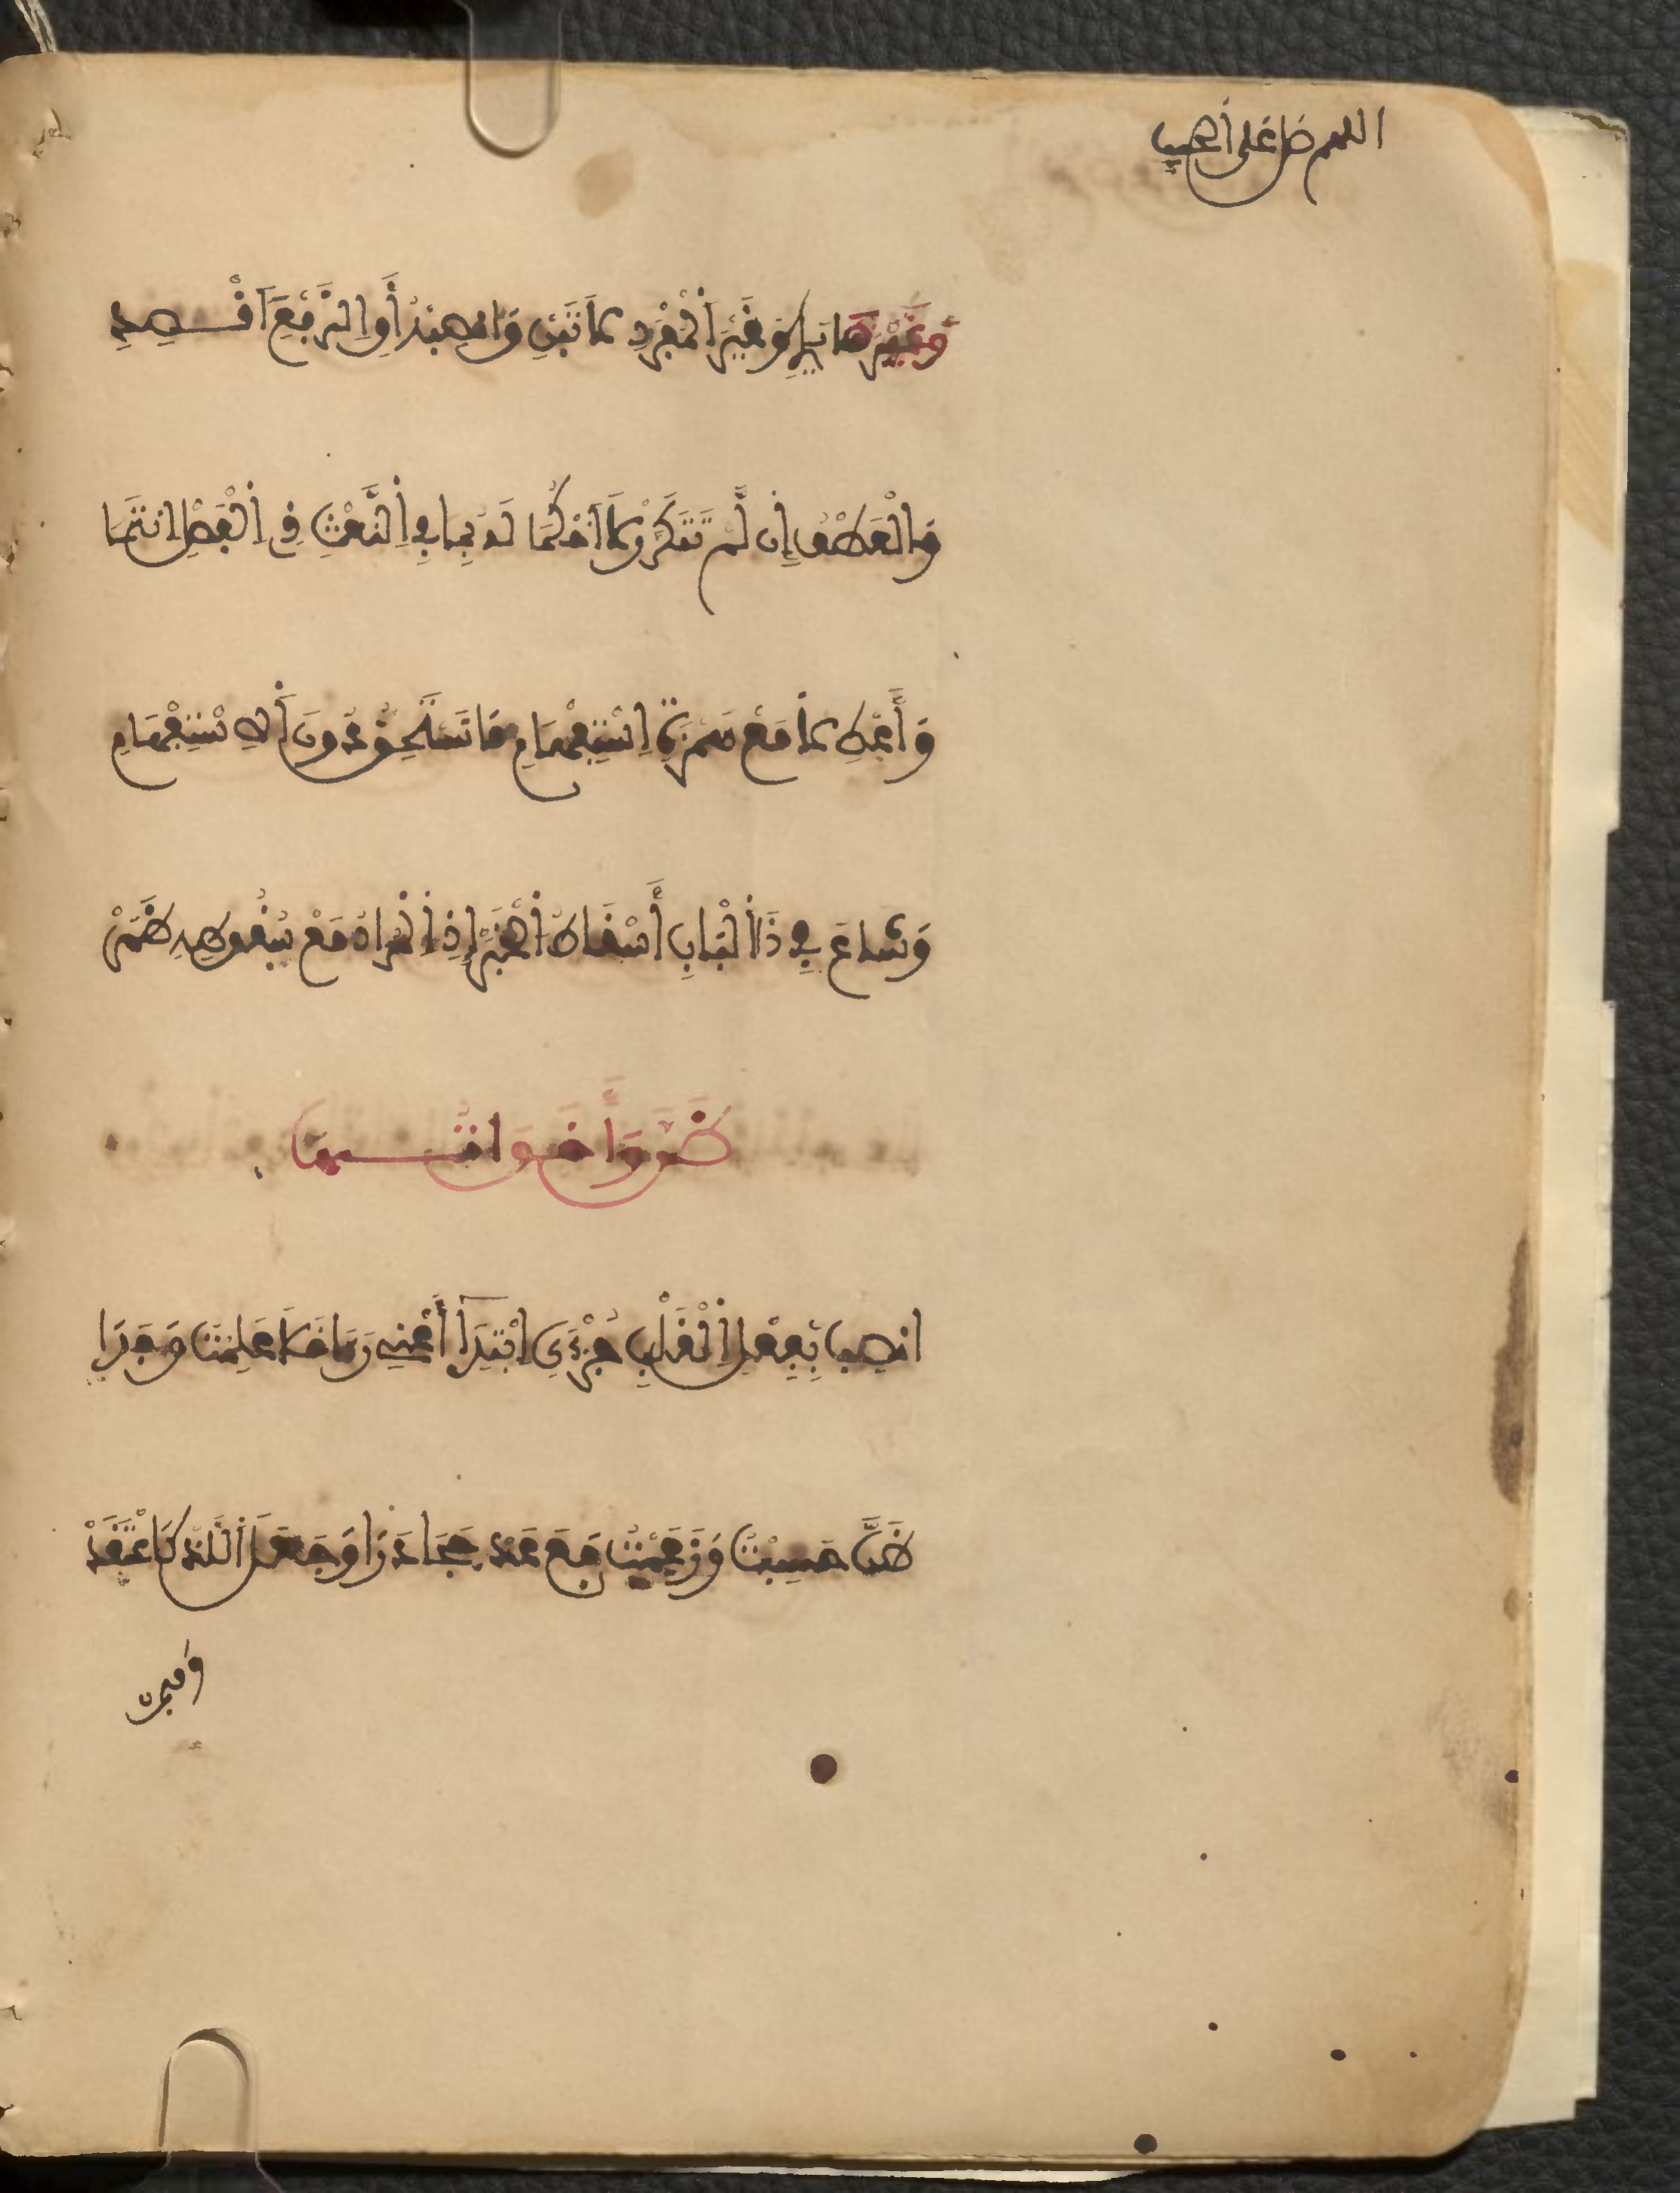 اللهم صل على الحبيب
وَغَيْرَ مَا يَلِي وَغَيْرَ الْمُفْرَدِ لَا تَبْنِ وَانْصِبْهُ أَوِ الرَّفْعَ اقْصِدِ
وَالْعَطْفُ إِن لَّمْ تَتَكَرَّرْ لَا احْكُمَا لَهُ بِمَا لِلنَّعْتِ ذِي الْفَصْلِ انْتَمَا
وَأَعْطِ لَا مَعْ هَمْزَةِ اسْتِفْهَامِ مَا تَسْتَحِقُّ دُونَ الِاسْتِفْهَامِ
وَشَاعَ فِي ذَا الْبَابِ أَسْقَاطُ الْخَبَرْ إِذِ الْمُرَادُ مَعْ سُقُوطِهِ ظَهَرْ
ظَنَّ وَأَخَوَاتُهَا
انْصِبْ بِفِعْلِ الْقَلْبِ جُزْءَيِ ابْتِدَا أَعْنِي رَءَا خَالَ عَلِمْتُ وَجَدَا
ظَنَّ حَسِبْتُ وَزَعَمْتُ مَعَ عَدّ حَجَا دَرَا وَجَعَلَ اللَّذْ كَاعْتَقَدْ